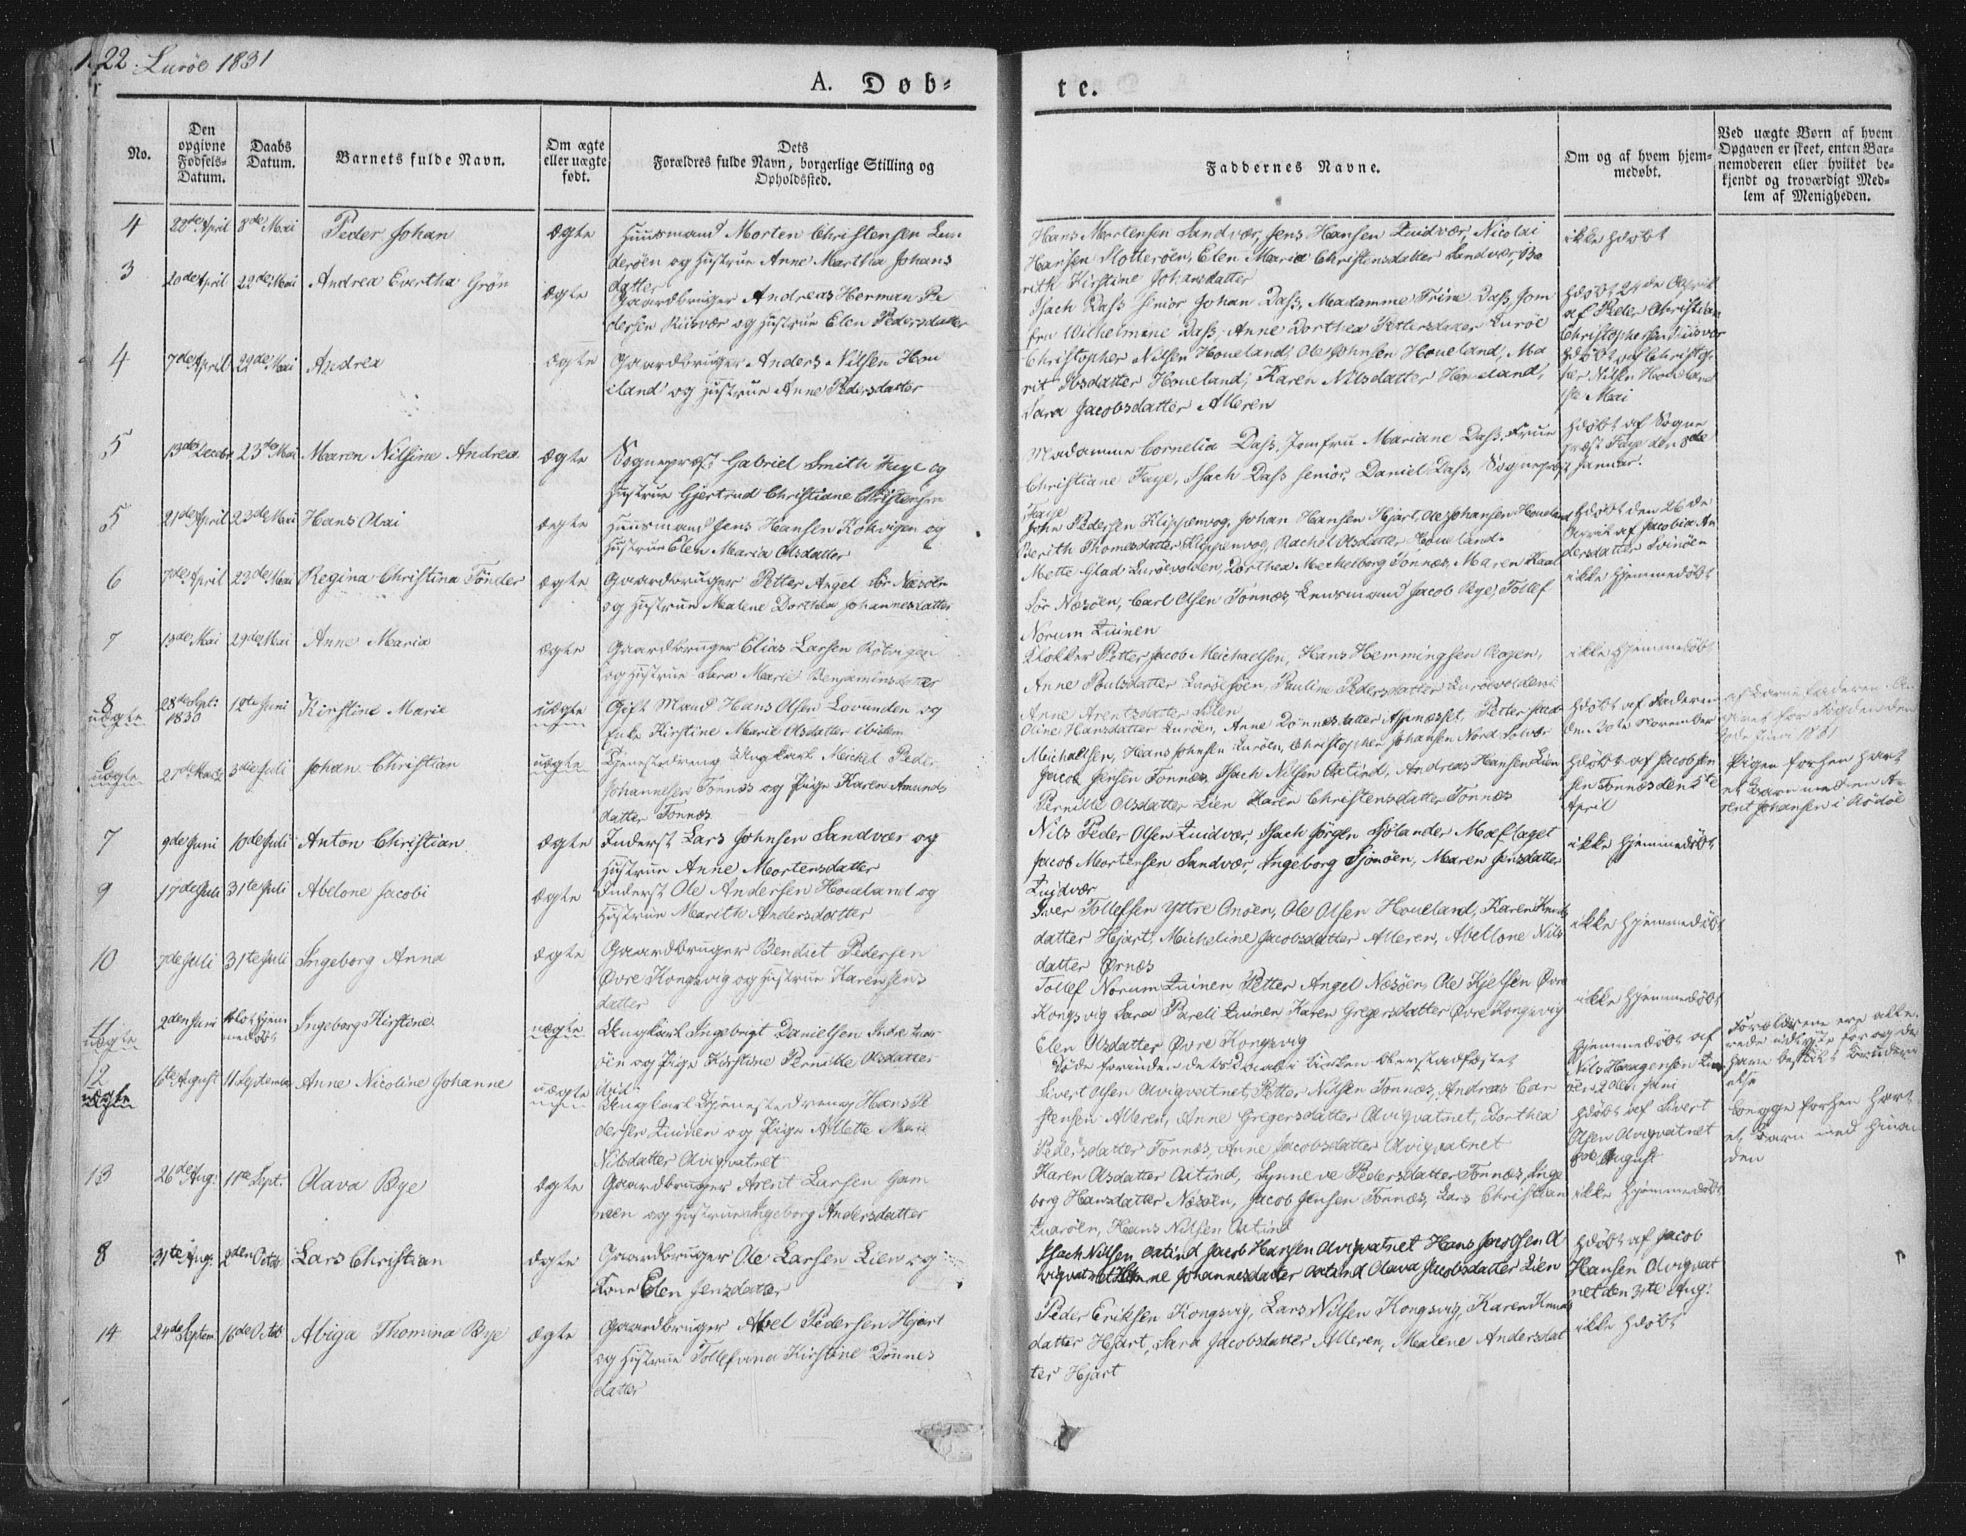 22. Lurøe 1831
A. Døb=
te.
No.
Den
opgivne
Fødsels-
Datum.
Daabs
Datum.
Barnets fulde Navn.
Om ægte
eller uægte
født.
Dets
Forældres fulde Navn, borgerlige Stilling og
Opholdssted.
Faddernes Navne.
Om og af hvem hjem-
medøbt.
Ved uægte Børn af hvem
Opgaven er skeet, enten Bar-
nemoderen eller hviltet be-
kjendt og troværdigt Med-
lem af Menigheden.
4 22de April 8de Mai Peder Johan ægte Huusmand Morten Christensen Lun
derøen og Hustrue Anne Martha Johans
datter
Hans Mortensen Sandvær, Jens Hansen Zuidvær, Nicolai
Hansen Slotterøen, Elen Maria Christensdatter Sandvær, Be
rith Kirstine Johansdatter
ikke hdøbt
3 20de April 22de Mai Andrea Evertha Grön ægte Gaardbruger Andreas Herman Pe
dersen Kuisvær og Hustrue Elen Pedersdatter
Isach Dass senior Johan Dass, Madamme Trine Dass, Jom
fru Wilhelmine Dass, Anne Dorthea Pettersdatter Lurøe
hdøbt 24de April
af Peder Christian
Christophersen Kuisvær
4 7de April 22de Mai Andrea ægte Gaardbruger Anders Nilsen Hou
eland og Hustrue Anne Pedersdatter
Christopher Nilsen Houeland, Ole Johnsen Houeland, Ma
rit Ibsdatter Houeland, Karen Nilsdatter Houeland,
Sara Jacobsdatter Alteren
hdøbt af Christo
fer Nilsen Houeland
1ste Mai
5 13de Decbr 23de Mai Maren Nilsine Andrea ægte Sognepræst Gabriel Smith Faye og
Hustrue Gjertrud Christiane Christensen
Madamme Cornelia Dass, Jomfru Mariane Dass, Frue
Christiane Faye, Isach Dass senior, Daniel Dass, Sognepræst
Faye
hdøbt af Sogne
præst Faye den 8de
Januar.
5 21de April 23de Mai Hans Olai ægte Huusmand Jens Hansen Kokvigen og
Hustrue Elen Maria Olsdatter
John Pedersen Klippenvog, Johan Hansen Hjart, Ole Johansen Houeland
Berith Thomesdatter Klippenvog, Rachel Olsdatter Houeland.
hdøbt den 26de
April af Jacobia An
dersdatter Svinøen
6 7de April 23de Mai Regina Christina Tönder ægte Gaardbruger Petter Angel Sör Næsöen
og Hustrue Malene Dorthea Johannesdatter
Mette Glad Lurøevolden, Dorthea Merkelborg Tonnes, Maren Kaal
Sör Næsöen, Carl Olsen Tonnes, Lensmand Jacob Bye, Tollef
Norum Zuinen
ikke hjemmedøbt
7 13de Mai 29de Mai Anne Maria ægte Gaardbruger Elias Larsen Rötvigen
og Hustrue Sara Marie Benjaminsdatter
Klokker Petter Jacob Michaelsen, Hans Hemmingsen Aagen,
Anne Poulsdatter Lurøesöen, Pauline Pedersdatter Lurøevolden
Anne Arentsdatter Silen
ikke hjemmedøbt
8 uægte 28de Sept: 1830 12te Juni Kirstine Marie uægte Gift Mand Hans Olsen Lovunden og
Enke Kirstine Marie Olsdatter ibidem
Oline Hansdatter Lurøen, Anne Dønnesdatter Aspnæsset, Petter Jacob
Michaelsen, Hans Johnsen Lurøen, Christopher Johansen Nord Solvær
hdøbt af Faderen
den 30te November
6 uægte 27de Marts 3die Juli Johan Christian uægte Tjenestedreng Ungkarl Meckel Peder
Johannesen Tonnes og Pige Karen Amunds
datter Tonnes
Jacob Jensen Tonnes, Isach Nilsen Oxtind, Andreas Hansen Lien
Pernille Olsdatter Lien, Karen Christensdatter Tonnes
hdøbt af Jacob Jen
sen Tonnes den 5te
April
Pigen forhen havt
et Barn med en A-
rent Johansen i Rødøe
7 9de Juni 10de Juli Anton Christian ægte Inderst Lars Johnsen Sandvær og
Hustrue Anne Mortensdatter
Nils Peder Olsen Zuidvær, Isach Jörgen Sjölander Moeflaget
Jacob Mortensen Sandvær, Ingeborg Sjonöen, Maren Jensdatter
Zuidvær
ikke hjemmedøbt
9 17de Juli 31te Juli Abelone Jacobi ægte Inderst Ole Andersen Houeland og
Hustrue Marith Andersdatter
Iver Tollefsen Yttre Onöen, Ole Olsen Houeland, Karen Knuds
datter Hjart, Micheline Jacobsdatter Alteren, Abellone Nils
datter Örnes
ikke hjemmedøbt
10 7de Juli 31te Juli Ingeborg Anna ægte Gaardbruger Bendict Pedersen
Övre Kongsvig og Hustrue Karen Jens
datter
Tollef Norum Zuinen Petter Angel Næsöen, Ole Kjelsen Övre
Kongsvig Sara Pareli Zuinen Karen Gregersdatter Övre Kongsvig
Elen Olsdatter Övre Kongsvig
ikke hjemmedøbt
11 uægte 2den Juni blot hjem
medøbt Ingeborg Kirstine uægte Ungkarl Ingebrigt Danielsen Indre Kvar
öen og Pige Kirstine Pernille Olsdatter
ibid:
Döde forinden dets Daab i Kirken blev stadfæstet
hjemmedøbt af
Nils Haagensen Kvar
öen 2den Juni
Forældrene ere alle
rede
12 uægte 6te August 11 September Anne Nicoline Johanne uægte Ungkarl Tjenestedreng Hans Pe
dersen Zuinen og Pige Allette Marie
Nilsdatter Olvigvatnet
Sivert Olsen Olvigvatnet, Petter Nilsen Tonnes, Andreas Car
stensen Alteren, Anne Gregersdatter Olvigvatnet, Dorthea
Pedersdatter Tonnes, Anne Jacobsdatter Olvigvatnet
hdøbt af Sivert
Olsen Olvigvatnet
August
begge forhen havt
et Barn med hinan
den
13 26de Aug: 11te Sept. Olava Bye ægte Gaardbruger Arent Larsen Gam
meen og Hustrue Ingeborg Andersdatter
Karen Olsdatter Oxtind, Synneve Pedersdatter Tonnes, Inge
borg Hansdatter Næsöen, Jacob Jensen Tonnes, Lars Christian
Kvaröen, Hans Nilsen Oxtind
ikke hjemmedøbt
8 31te Aug: 2den Octob Lars Christian ægte Gaardbruger Ole Larsen Lien og
Kone Elen Jensdatter
Isach Nilsen Oxtind Jacob Hansen Olvigvatnet Hans Jacobsen Ol
vigvatnet Johannesdatter Oxtind Olava Jacobsdatter Lien
hdøbt af Jacob
Hansen Olvigvat
net den 31te Aug:
14 24de Septem 16de Octob Abiga Thomina Bye ægte Gaardbruger Abel Pedersen Hjart
og Hustrue Tollefvina Kirstine Dönnes
datter
Peder Eriksen Kongsvig, Lars Nilsen Kongsvig, Karen Knuds
datter Hjart, Sara Jacobsdatter Alteren, Malene Andersdat
ter Hjart
ikke hdøbt